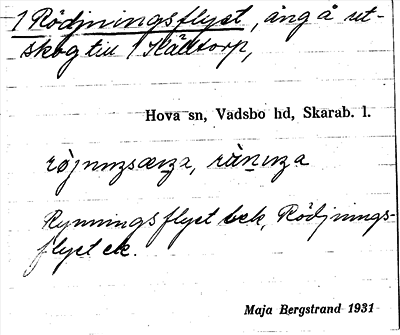 1 Rödjningsflyet, äng å ut-
skog till 1 Källtorp,
Hova sn, Vadsbo hd, Skarab. l.
Rynningsflyet ek, Rödjnings-
flyet ek.
Maja Bergstrand 1931